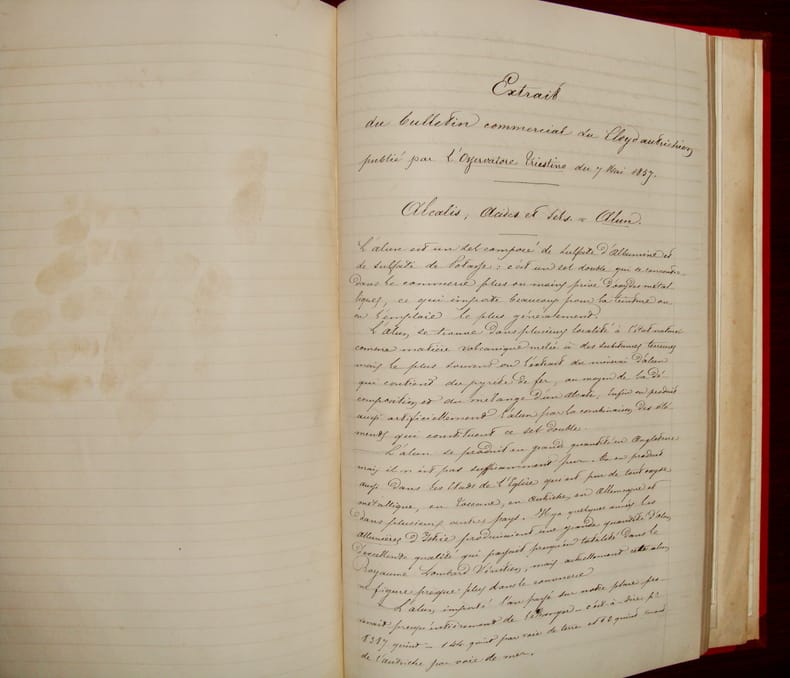 Extrait
du bulletin commercial du Lloyd autrichien
publié par L'Osservatore Triestino du 7 Mai 1857.
Alcalis, Acides et Sels. = Alun.
L'alun est un sel composé de sulfate d'Allumine et
de sulfate de Potasse; c'est un sel double qui se rencontre
dans le commerce plus ou moins privé d'oxydes métal
liques, ce qui importe beaucoup pour la teinture ou
on l'emploie le plus généralement.
L'alun se trouve dans plusieurs localité à l'état naturel
comme matière volcanique mêlée à des substances terreuses
mais le plus souvent on l'extrait du minerai d'alun
qui contient du pyrite de fer, au moyen de la dé
composition et du mélange d'un alcali, enfin on produit
aussi artificiellement l'alun par la combinaison des élé
ments qui constituent ce sel double.
L'alun se produit en grande quantité en Angleterre
mais il n'est pas suffisamment pur. On en produit
aussi dans les Etats de l'Eglise qui est pur de tout oxyde
métallique, en Toscane, en Autriche, en Allemagne et
dans plusieurs autres pays. Il y a quelques années les
allumières d'Istrie produisaient une grande quantité d'alun
d'excellente qualité qui passait presqu'en totalité dans le
Royaume Lombard Vénitien, mais actuellement cette alun
ne figure presque plus dans le commerce
L'alun importé l'an passé sur notre place pro-
venait presqu'entièrement de l'étranger – c'est à dire pr
8387 quint – 144 quint par voie de terre et 62 quint
de l'Autriche par voie de mer.